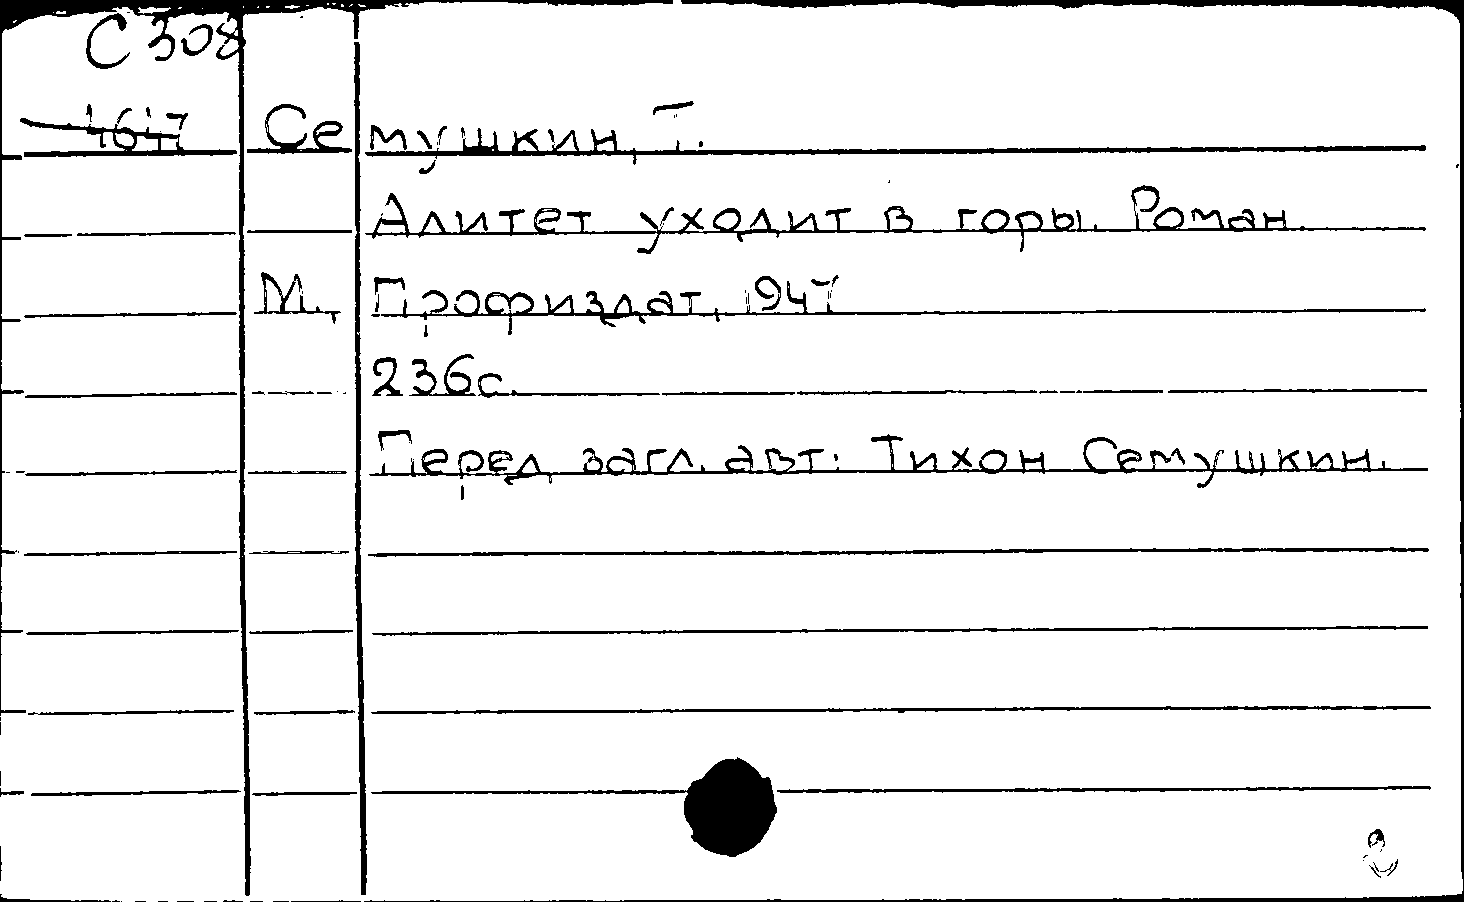 С 308
4647
Семушкин, Т.
Алитет уходит в горы. Роман.
М., Профиздат, 1947
236с.
Перед загл. авт: Тихон Семушкин.